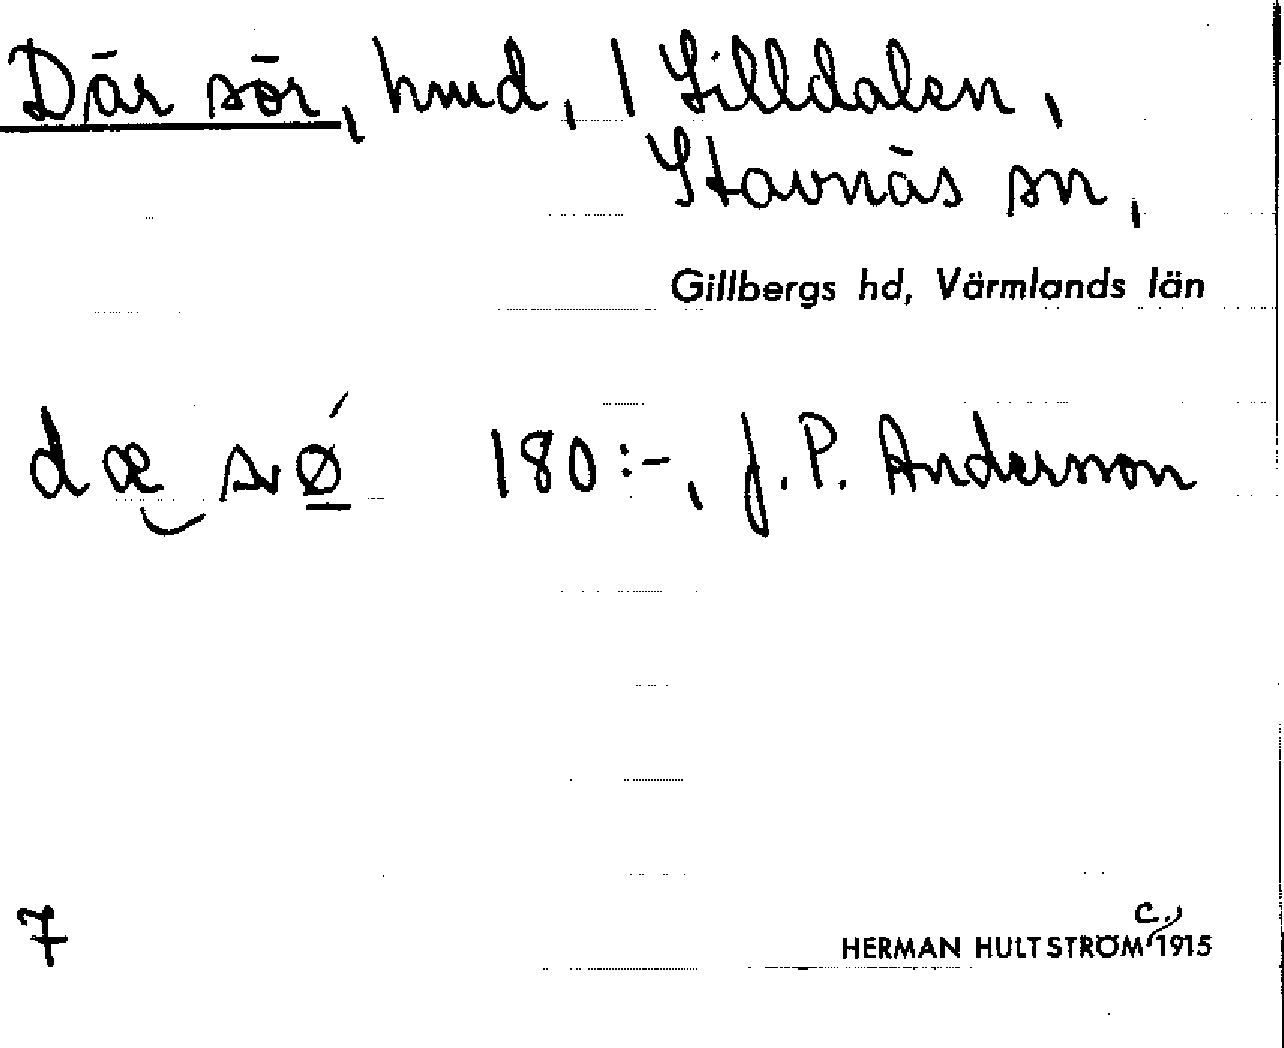 Där sör, hmd, 1 Lilldalen,
Stavnäs sn,
Gillbergs hd, Värmlands län
dæ sø 180:-, J. P. Andersson
7
c.,
HERMAN HULTSTRÖM 1915